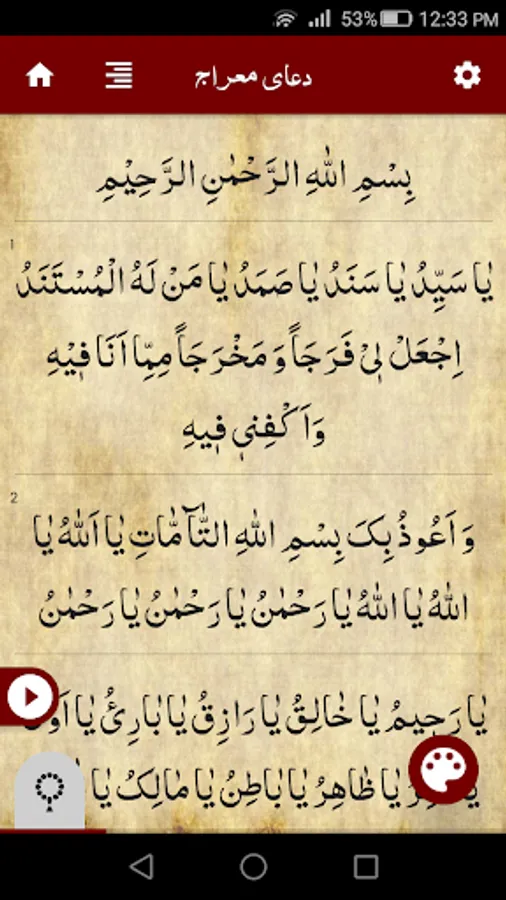 53% 12:33 PM
دعای معراج
بِسْمِ اللهِ الرَّحْمٰنِ الرَّحِیْمِ
1
یٰا سَیِّدُ یٰا سَنَدُ یٰا صَمَدُ یٰا مَنْ لَهُ الْمُسْتَنَدُ
اِجْعَلْ لِیْ فَرَجَاً وَ مَخْرَجَاً مِمِّا اَنَا فِیْهِ
وَ اَکْفِنیٖ فیٖهِ
2
وَ اَعُوذُ بِکَ بِسْمِ اللهِ التّٰآمّٰاتِ یٰا اَللهُ یٰا
اللهُ یٰا اللهُ یٰا رَحْمٰنُ یٰا رَحْمٰنُ یٰا رَحْمٰنُ
یٰا رَحیٖمُ یٰا خٰالِقُ یٰا رَازِقُ یٰا بٰارِئُ یٰا
یٰا ظٰاهِرُ یٰا بٰاطِنُ یٰا مٰالِکُ یٰا